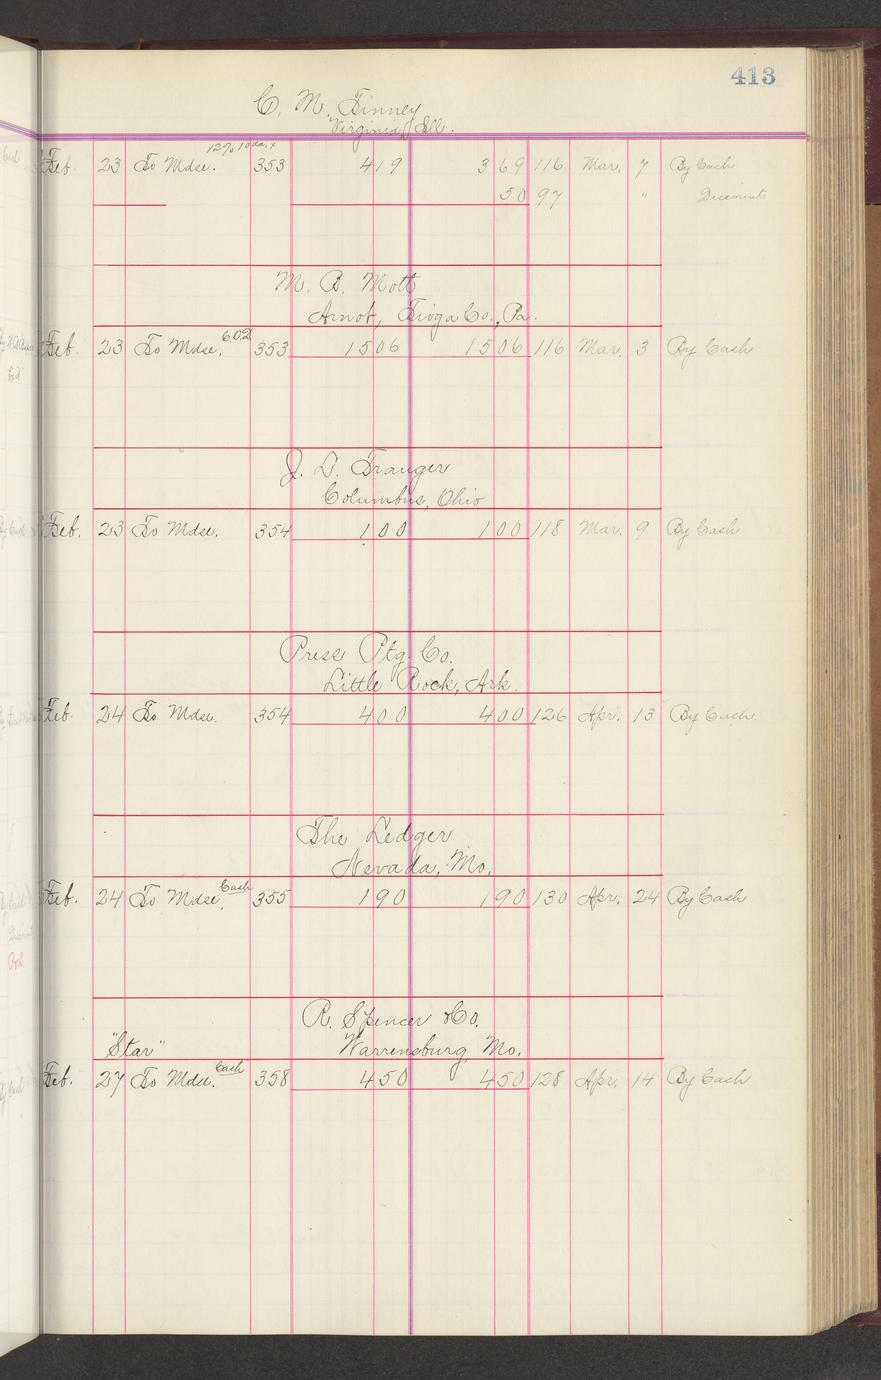 413
C. M. Tinney
Virginia, Ill.
Feb. 23 To Mdse. 12% 10 days 353 419 3 69 116 Mar. 7 By Cash
50 97 " Discount
M. B. Mott
Arnot, Tioga Co., Pa.
Feb. 23 To Mdse. C.O.D. 353 1506 1506 116 Mar. 3 By Cash
J. L. Trauger
Columbus, Ohio
Feb. 23 To Mdse. 354 100 100 118 Mar. 9 By Cash
Press Ptg. Co.
Little Rock, Ark.
Feb. 24 To Mdse. 354 400 400 126 Apr. 13 By Cash.
The Ledger
Nevada, Mo.
Feb. 24 To Mdse. Cash 355 190 190 130 Apr. 24 By Cash
R. Spencer & Co.
"Star" Warrensburg, Mo.
Feb. 27 To Mdse. Cash 358 450 450 128 Apr. 14 By Cash